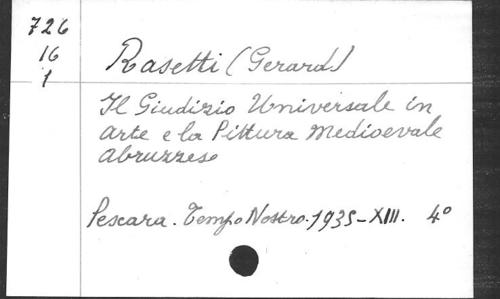 726
16
1
Rasetti (Gerard.)
Il Giudizio Universale in
arte e la Pittura Medioevale
abruzzese
Pescara. Tempo Nostro. 1935-XIII. 4°